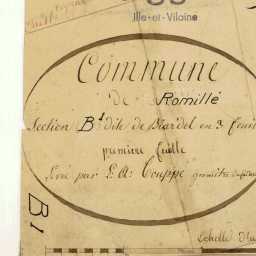 Ille-et-Vilaine
Commune
de Romillé
Section B¹ dite de Bardel en 3 feuil
première feuille
Levé par L. A. Couppe géomètre
B¹
Echelle